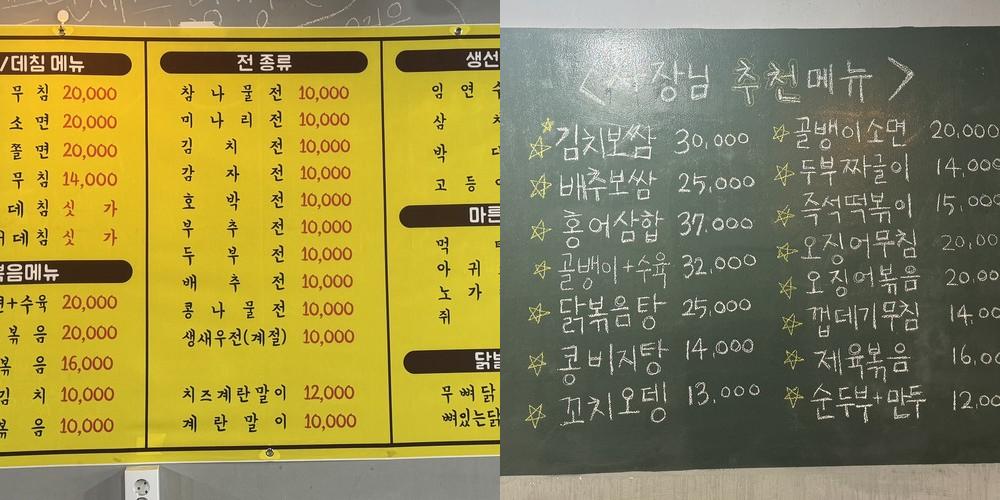 /데침 메뉴
무침 20,000
소면 20,000
쫄면 20,000
무침 14,000
데침 싯가
데침 싯가
볶음메뉴
+수육 20,000
볶음 20,000
볶음 16,000
김치 10,000
볶음 10,000
전 종류
참나물전 10,000
미나리전 10,000
김치전 10,000
감자전 10,000
호박전 10,000
부추전 10,000
두부전 10,000
배추전 10,000
콩나물전 10,000
생새우전(계절) 10,000
치즈계란말이 12,000
계란말이 10,000
생선
임연수
삼치
박대
고등어
마른
먹
아귀
노가
쥐
닭발
무뼈닭
뼈있는닭
<사장님 추천메뉴>
김치보쌈 30,000
배추보쌈 25,000
홍어삼합 37,000
골뱅이+수육 32,000
닭볶음탕 25,000
콩비지탕 14,000
꼬치오뎅 13,000
골뱅이소면 20,000
두부짜글이 14,000
즉석떡볶이 15,000
오징어무침 20,00
오징어볶음 20,00
껍데기무침 14,00
제육볶음 16,0
순두부+만두 12,00